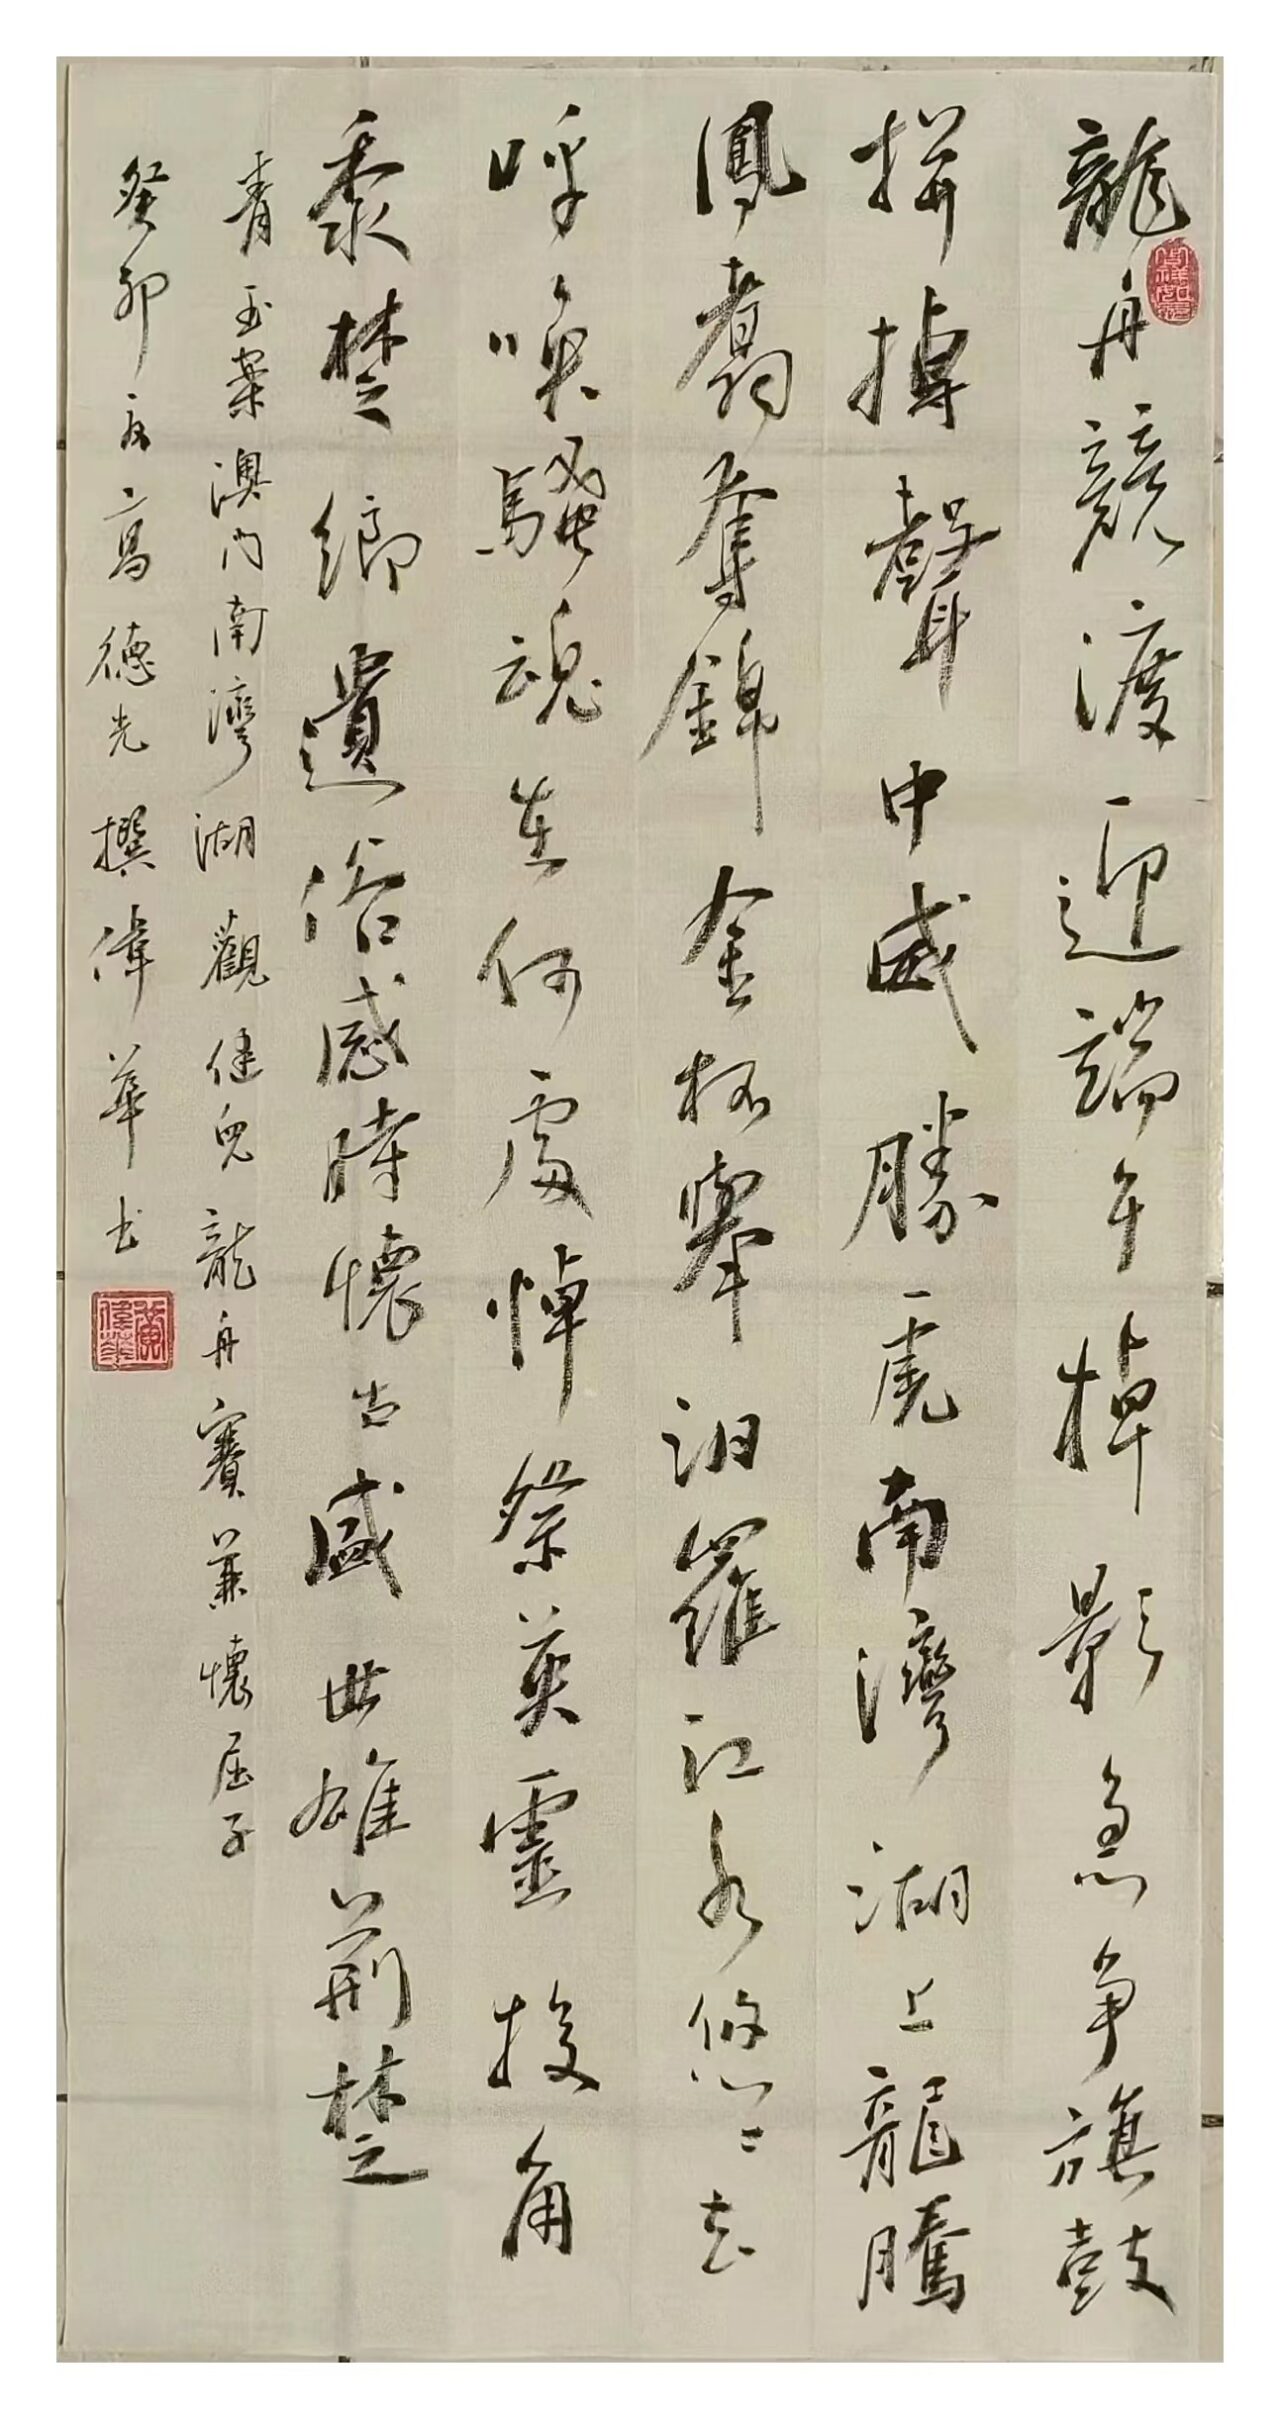 龍舟競渡迎端午棹影急爭旗鼓
拼搏聲中威勝虎南灣湖上龍騰
鳳翥奪錦金杯舉汨羅江水悠〻去
呼喚騷魂在何處悼祭英靈投角
黍楚鄉遺俗感時懷古盛世雄荊楚
青玉案澳门南灣湖觀健兒龍舟賽兼懷屈子
癸卯夏高德光撰偉華书